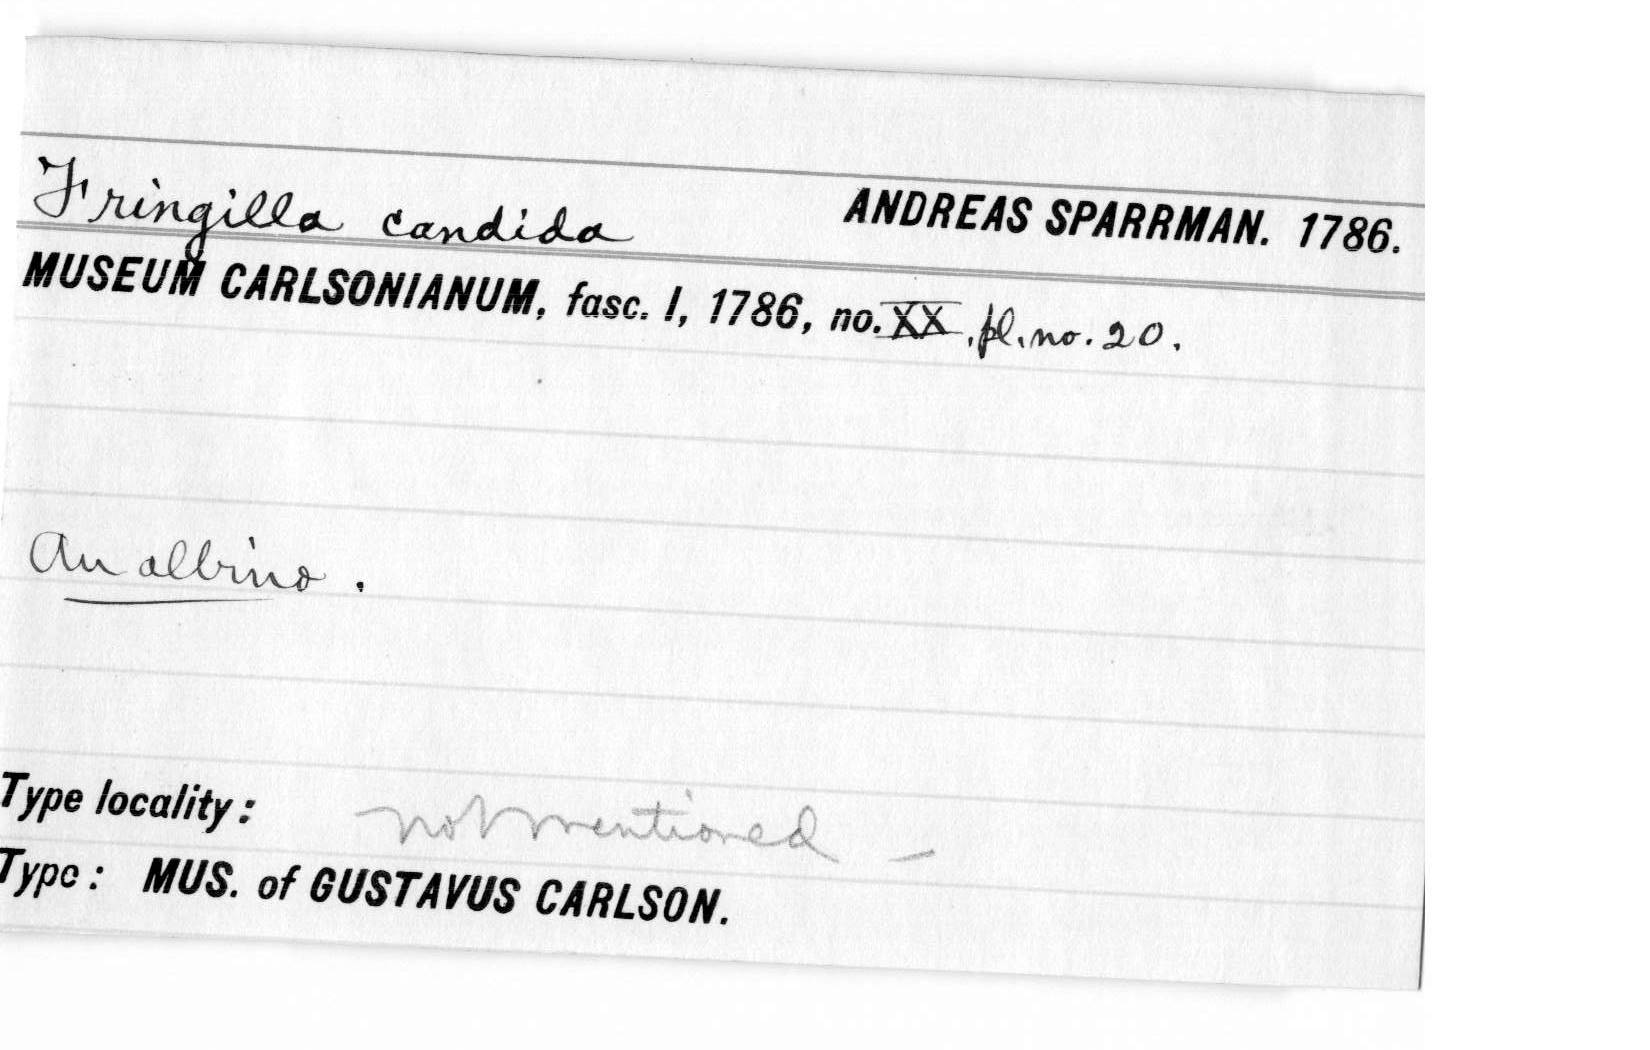 Fringilla candida ANDREAS SPARRMAN. 1786.
MUSEUM CARLSONIANUM, fasc. I, 1786, no. XX, pl. no. 20.
An albino.
Type locality: not mentioned –
Type: MUS. of GUSTAVUS CARLSON.